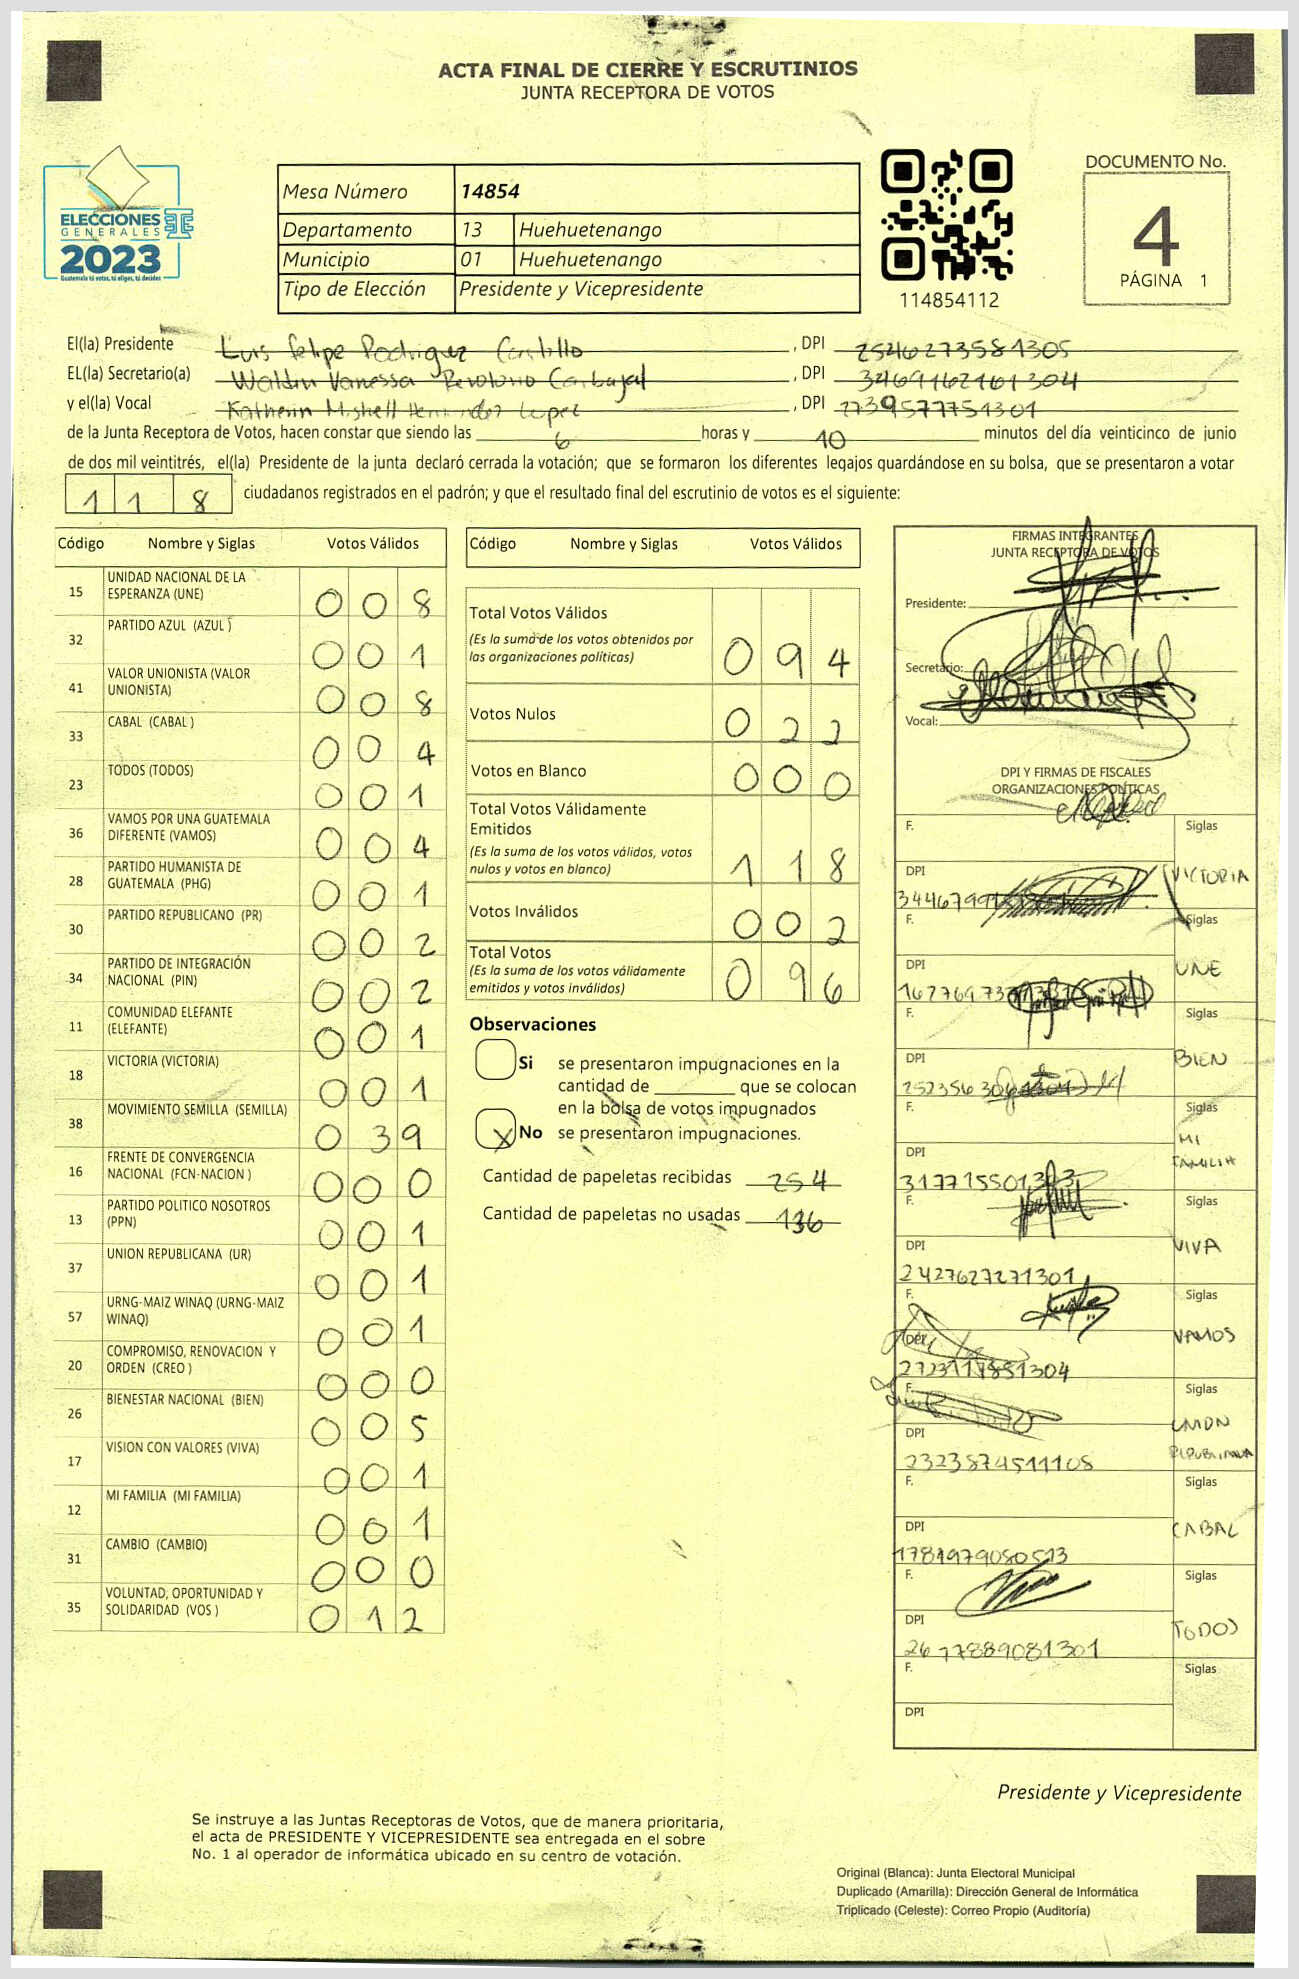 ACTA FINAL DE CIERRE Y ESCRUTINIOS
JUNTA RECEPTORA DE VOTOS
ELECCIONES
GENERALES
2023
Guatemala tú votas, tú eliges, tú decides
Mesa Número 14854
Departamento 13 Huehuetenango
Municipio 01 Huehuetenango
Tipo de Elección Presidente y Vicepresidente
114854112
DOCUMENTO No.
4
PÁGINA 1
El(la) Presidente Luis felipe Rodriguez Castillo, DPI 2546273581305
EL(la) Secretario(a) Waldin Vanessa Carbajal, DPI 3469162161304
y el(la) Vocal Katherin Mishell Hernandez Lopez, DPI 2739577751301
de la Junta Receptora de Votos, hacen constar que siendo las 6 horas y 10 minutos del día veinticinco de junio
de dos mil veintitrés, el(la) Presidente de la junta declaró cerrada la votación; que se formaron los diferentes legajos quardándose en su bolsa, que se presentaron a votar
118 ciudadanos registrados en el padrón; y que el resultado final del escrutinio de votos es el siguiente:
Código Nombre y Siglas Votos Válidos
15 UNIDAD NACIONAL DE LA ESPERANZA (UNE) 008
32 PARTIDO AZUL (AZUL ) 001
41 VALOR UNIONISTA (VALOR UNIONISTA) 008
33 CABAL (CABAL ) 004
23 TODOS (TODOS) 001
36 VAMOS POR UNA GUATEMALA DIFERENTE (VAMOS) 004
28 PARTIDO HUMANISTA DE GUATEMALA (PHG) 001
30 PARTIDO REPUBLICANO (PR) 002
34 PARTIDO DE INTEGRACIÓN NACIONAL (PIN) 002
11 COMUNIDAD ELEFANTE (ELEFANTE) 001
18 VICTORIA (VICTORIA) 001
38 MOVIMIENTO SEMILLA (SEMILLA) 039
16 FRENTE DE CONVERGENCIA NACIONAL (FCN-NACION ) 000
13 PARTIDO POLITICO NOSOTROS (PPN) 001
37 UNION REPUBLICANA (UR) 001
57 URNG-MAIZ WINAQ (URNG-MAIZ WINAQ) 001
20 COMPROMISO, RENOVACION Y ORDEN (CREO ) 000
26 BIENESTAR NACIONAL (BIEN) 005
17 VISION CON VALORES (VIVA) 001
12 MI FAMILIA (MI FAMILIA) 001
31 CAMBIO (CAMBIO) 000
35 VOLUNTAD, OPORTUNIDAD Y SOLIDARIDAD (VOS ) 012
Código Nombre y Siglas Votos Válidos
Total Votos Válidos 094
(Es la suma de los votos obtenidos por
las organizaciones políticas)
Votos Nulos 022
Votos en Blanco 000
Total Votos Válidamente
Emitidos 118
(Es la suma de los votos válidos, votos
nulos y votos en blanco)
Votos Inválidos 002
Total Votos 096
(Es la suma de los votos válidamente
emitidos y votos inválidos)
Observaciones
Si se presentaron impugnaciones en la
cantidad de ________ que se colocan
en la bolsa de votos impugnados
X No se presentaron impugnaciones.
Cantidad de papeletas recibidas 254
Cantidad de papeletas no usadas 136
FIRMAS INTEGRANTES
JUNTA RECEPTORA DE VOTOS
Presidente:
Secretario:
Vocal:
DPI Y FIRMAS DE FISCALES
ORGANIZACIONES POLÍTICAS
F. Siglas
DPI VICTORIA
F. Siglas
DPI UNE
F. Siglas
DPI BIEN
F. Siglas
DPI MI FAMILIA
317715501303
F. Siglas
DPI VIVA
2427627271301
F. Siglas
DPI VAMOS
F. Siglas
DPI UNION REPUBLICANA
2323874511108
F. Siglas
DPI CABAL
1781979080513
F. Siglas
DPI TODOS
2677889081301
F. Siglas
DPI
Presidente y Vicepresidente
Se instruye a las Juntas Receptoras de Votos, que de manera prioritaria,
el acta de PRESIDENTE Y VICEPRESIDENTE sea entregada en el sobre
No. 1 al operador de informática ubicado en su centro de votación.
Original (Blanca): Junta Electoral Municipal
Duplicado (Amarilla): Dirección General de Informática
Triplicado (Celeste): Correo Propio (Auditoría)